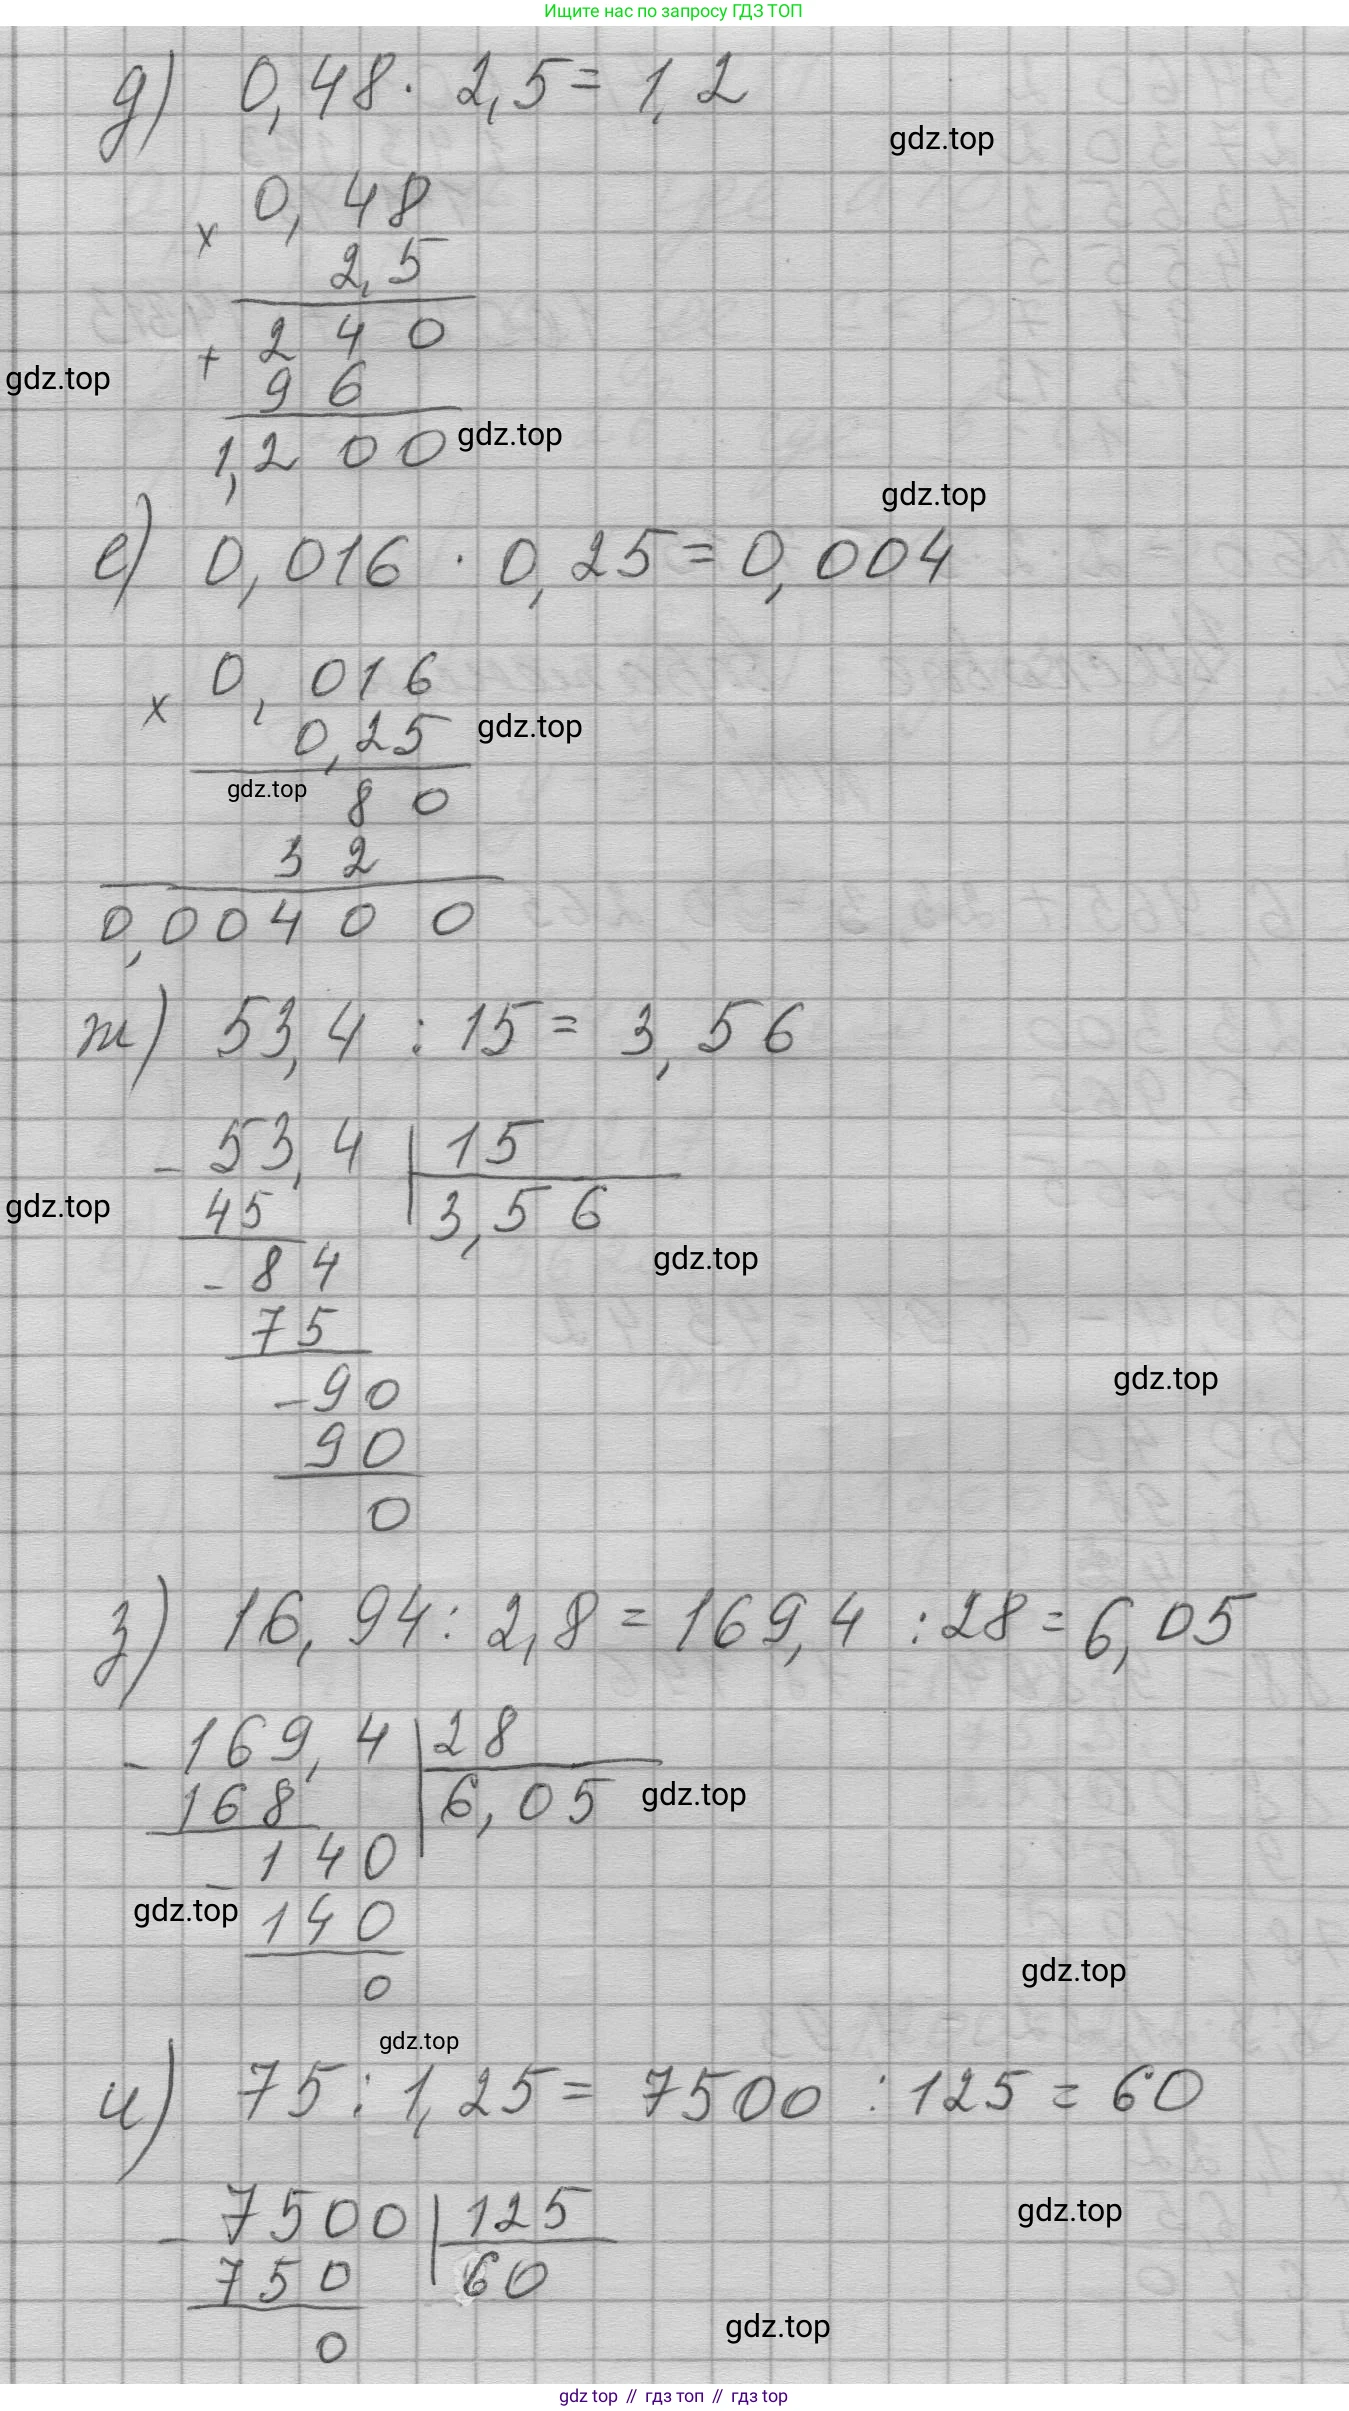 Ищите нас по запросу ГДЗ ТОП
д) 0,48 · 2,5 = 1,2
gdz.top
× 0,48
2,5
+ 240
gdz.top
96
1,200
gdz.top
gdz.top
е) 0,016 · 0,25 = 0,004
× 0,016
0,25
gdz.top
gdz.top
80
32
0,00400
ж) 53,4 : 15 = 3,56
- 53,4 | 15
gdz.top
45 3,56
gdz.top
- 84
75
gdz.top
- 90
90
0
з) 16,94 : 2,8 = 169,4 : 28 = 6,05
- 169,4 | 28
168 6,05
gdz.top
- 140
gdz.top
140
gdz.top
0
gdz.top
и) 75 : 1,25 = 7500 : 125 = 60
- 7500 | 125
gdz.top
750 60
gdz.top
0
gdz top // гдз топ // гдз top